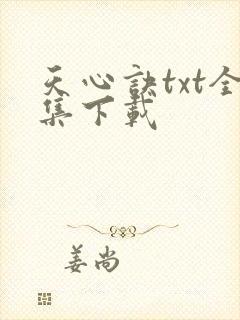 天心訣txt全
集下載
姜尚